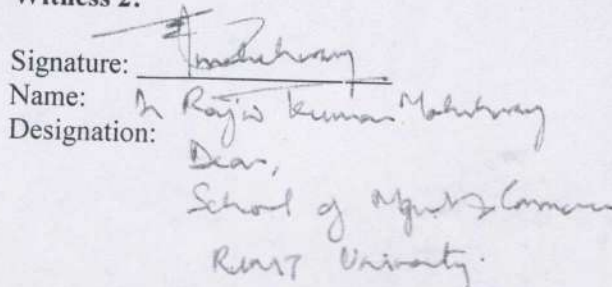 Witness 2:
Signature:
Name: Dr Rajiv Kumar
Designation:
Dean,
School of Mgmt & Commerce
University.